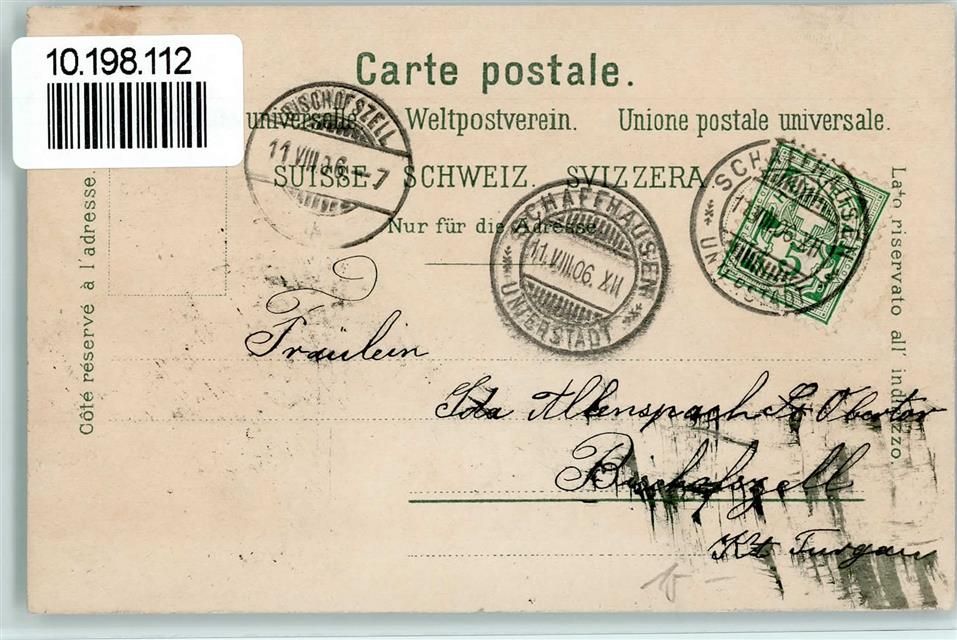 10.198.112
Carte postale.
universelle. Weltpostverein. Unione postale universale.
SUISSE. SCHWEIZ. SVIZZERA.
Nur für die Adresse.
Côté réservé à l'adresse.
Lato riservato all' indirizzo.
BISCHOFSZELL
11.VIII.06.-7
SCHAFFHAUSEN
11.VIII.06.XII
UNTERSTADT
SCHAFFHAUSEN
11.VIII.06.XII
UNTERSTADT
5
Fräulein
Ida Allenspach Obertor
Bischofszell
Kt. Turgau